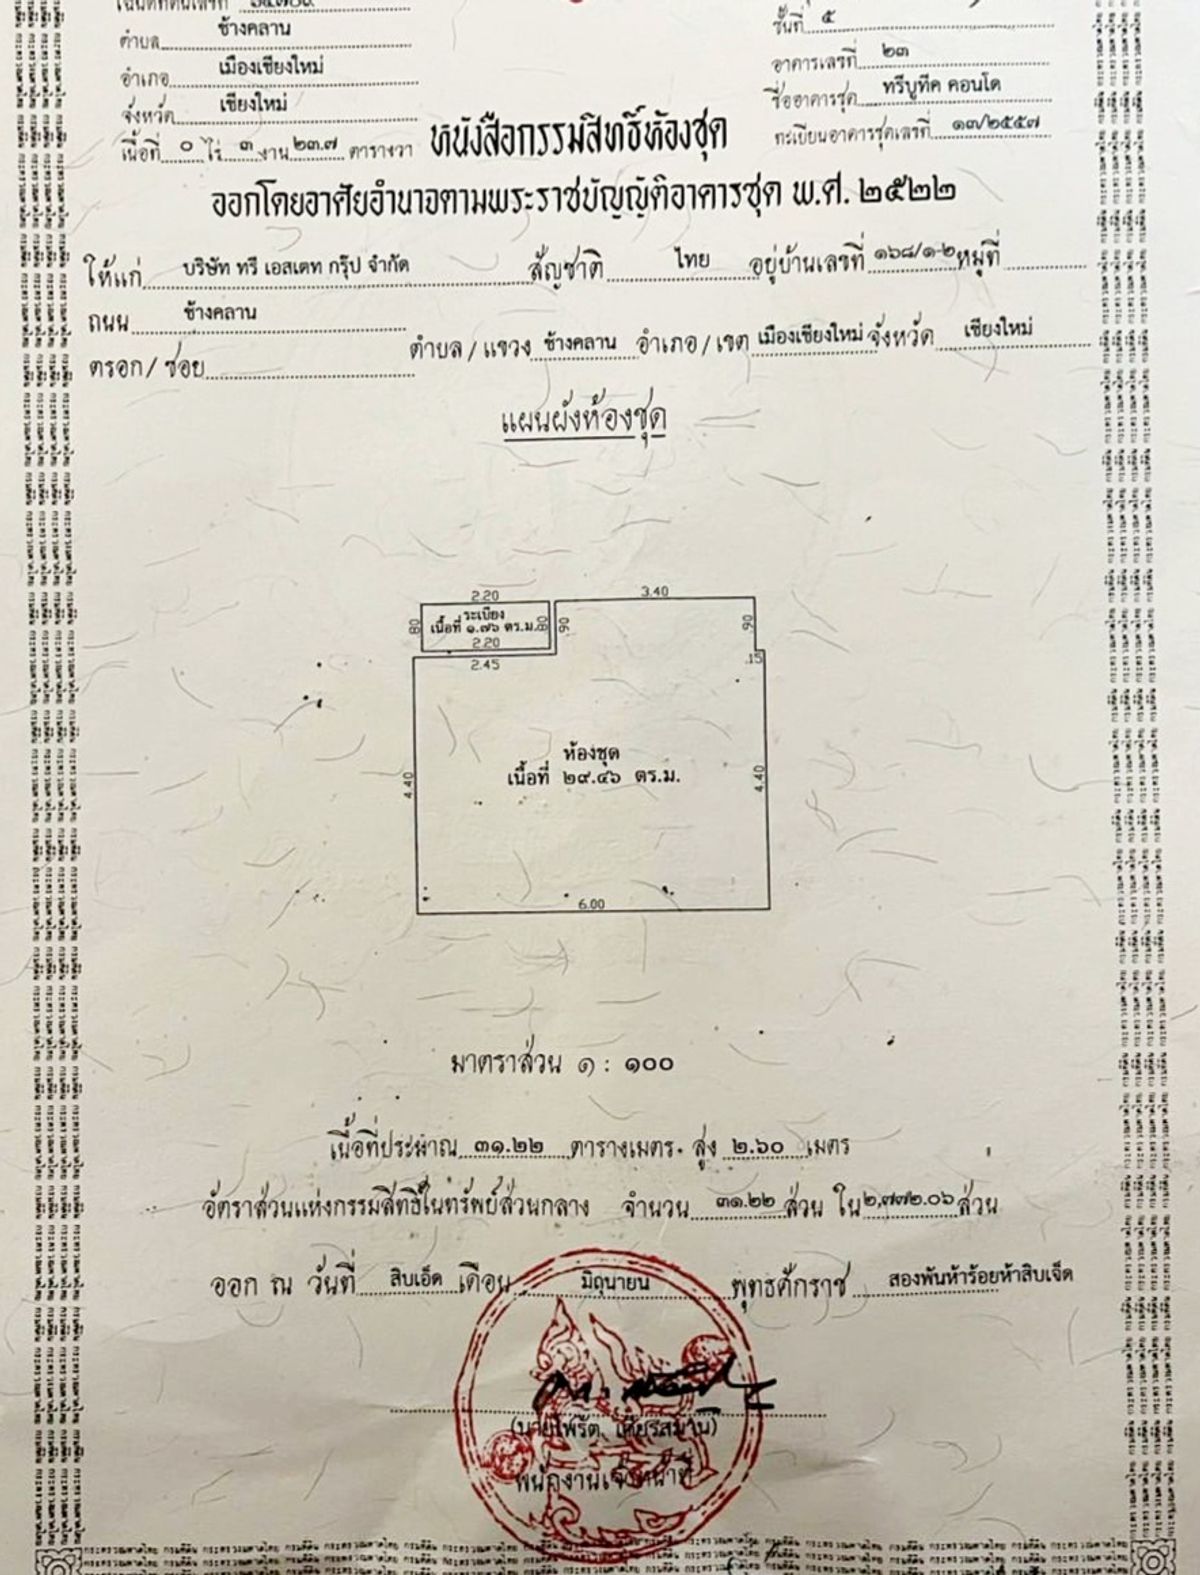 โฉนดที่ดินเลขที่
ตำบล ช้างคลาน
อำเภอ เมืองเชียงใหม่
จังหวัด เชียงใหม่
เนื้อที่ ๐ ไร่ ๓ งาน ๒๓.๗ ตารางวา
ชั้นที่ ๕
อาคารเลขที่ ๒๓
ชื่ออาคารชุด ทรีบูทีค คอนโด
ทะเบียนอาคารชุดเลขที่ ๑๓/๒๕๕๗
หนังสือกรรมสิทธิ์ห้องชุด
ออกโดยอาศัยอำนาจตามพระราชบัญญัติอาคารชุด พ.ศ. ๒๕๒๒
ให้แก่ บริษัท ทรี เอสเตท กรุ๊ป จำกัด สัญชาติ ไทย อยู่บ้านเลขที่ ๑๖๘/๑-๒ หมู่ที่
ถนน ช้างคลาน
ตรอก/ซอย ตำบล/แขวง ช้างคลาน อำเภอ/เขต เมืองเชียงใหม่ จังหวัด เชียงใหม่
แผนผังห้องชุด
2.20 3.40
ระเบียง
.80 เนื้อที่ ๑.๗๖ ตร.ม. .80 .90 .90
2.20
2.45 .15
ห้องชุด
เนื้อที่ ๒๙.๔๖ ตร.ม.
4.40 4.40
6.00
มาตราส่วน ๑ : ๑๐๐
เนื้อที่ประมาณ ๓๑.๒๒ ตารางเมตร. สูง ๒.๖๐ เมตร
อัตราส่วนแห่งกรรมสิทธิ์ในทรัพย์ส่วนกลาง จำนวน ๓๑.๒๒ ส่วน ใน ๒,๗๗๒.๐๖ ส่วน
ออก ณ วันที่ สิบเอ็ด เดือน มิถุนายน พุทธศักราช สองพันห้าร้อยห้าสิบเจ็ด
พนักงานเจ้าหน้าที่